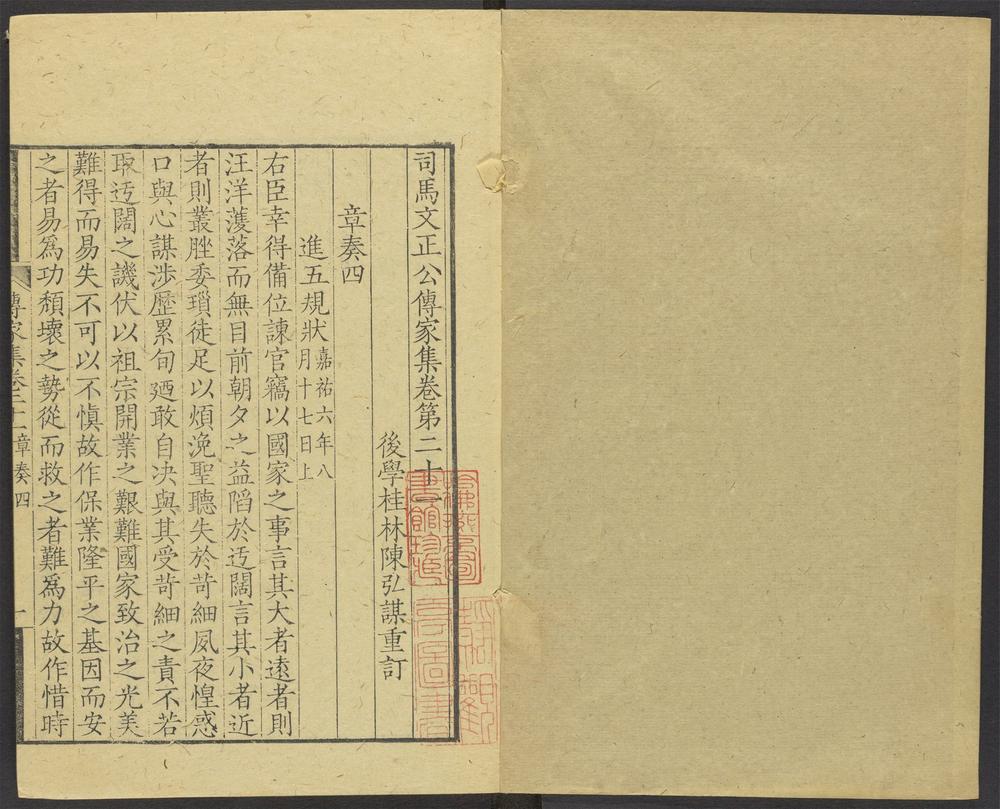 司馬文正公傳家集卷第二十一
後學桂林陳弘謀重訂
章奏四
進五規狀嘉祐六年八月十七日上
右臣幸得備位諫官竊以國家之事言其大者遠者則
汪洋濩落而無目前朝夕之益陷於迂闊言其小者近
者則叢脞委瑣徒足以煩浼聖聽失於苛細夙夜惶惑
口與心謀涉歷累旬廼敢自決與其受苛細之責不若
取迂闊之譏伏以祖宗開業之艱難國家致治之光美
難得而易失不可以不慎故作保業隆平之基因而安
之者易為功頹壞之勢從而救之者難為力故作惜時
傳家集卷二十一章奏四
一